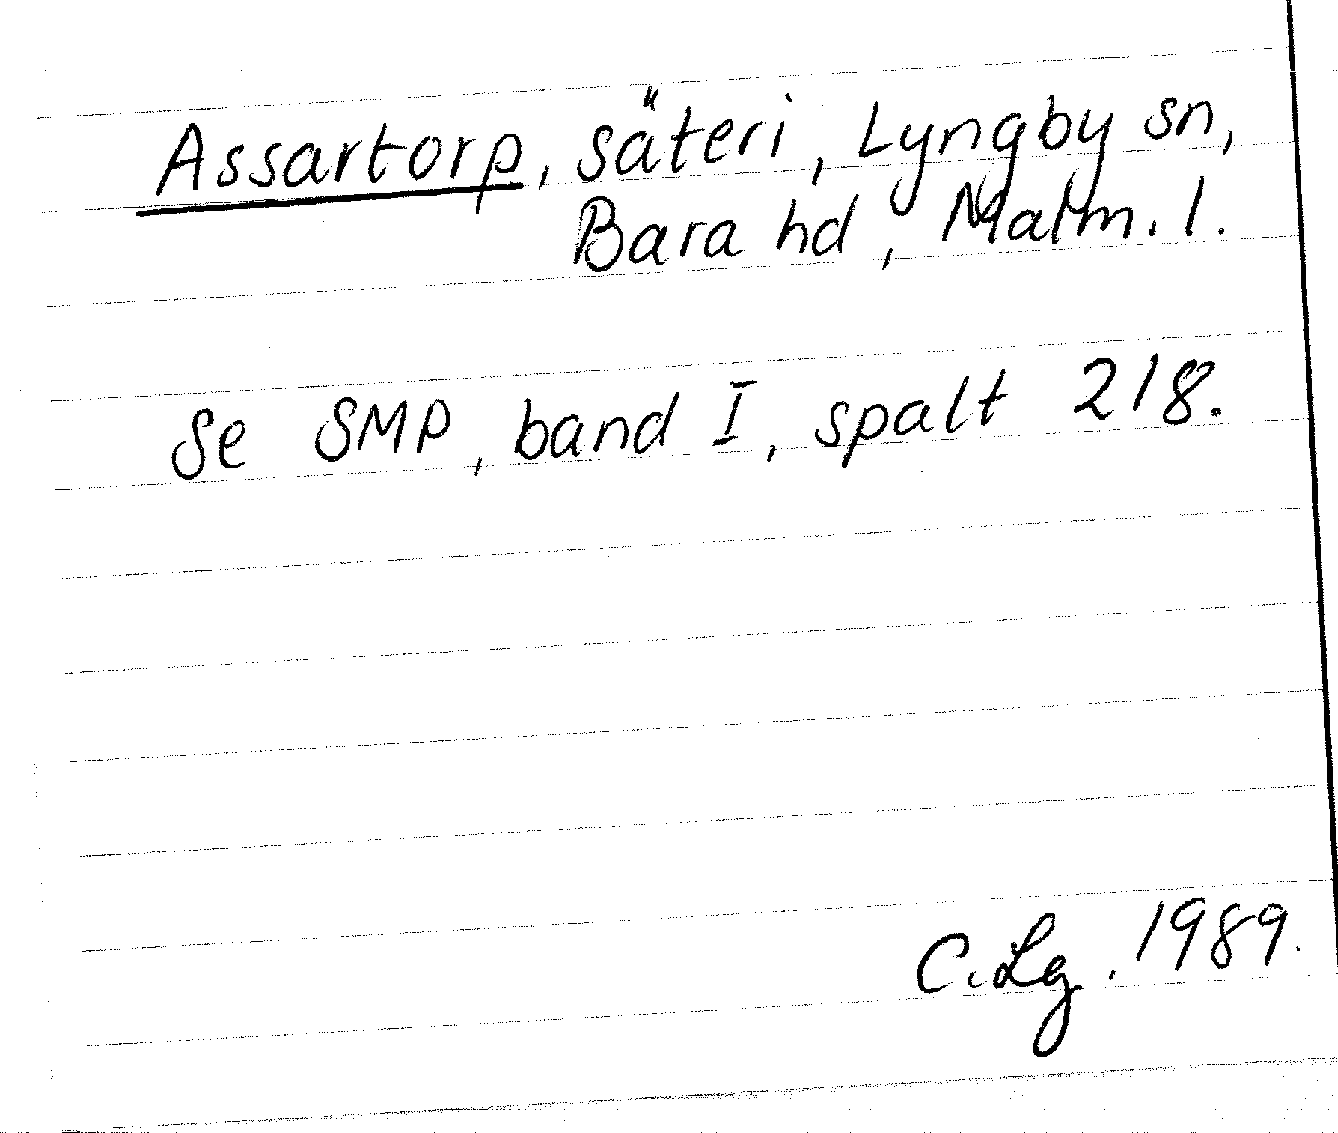 Assartorp, säteri, Lyngby sn,
Bara hd, Malm. l.
Se SMP, band I, spalt 218.
C. Lg. 1989.